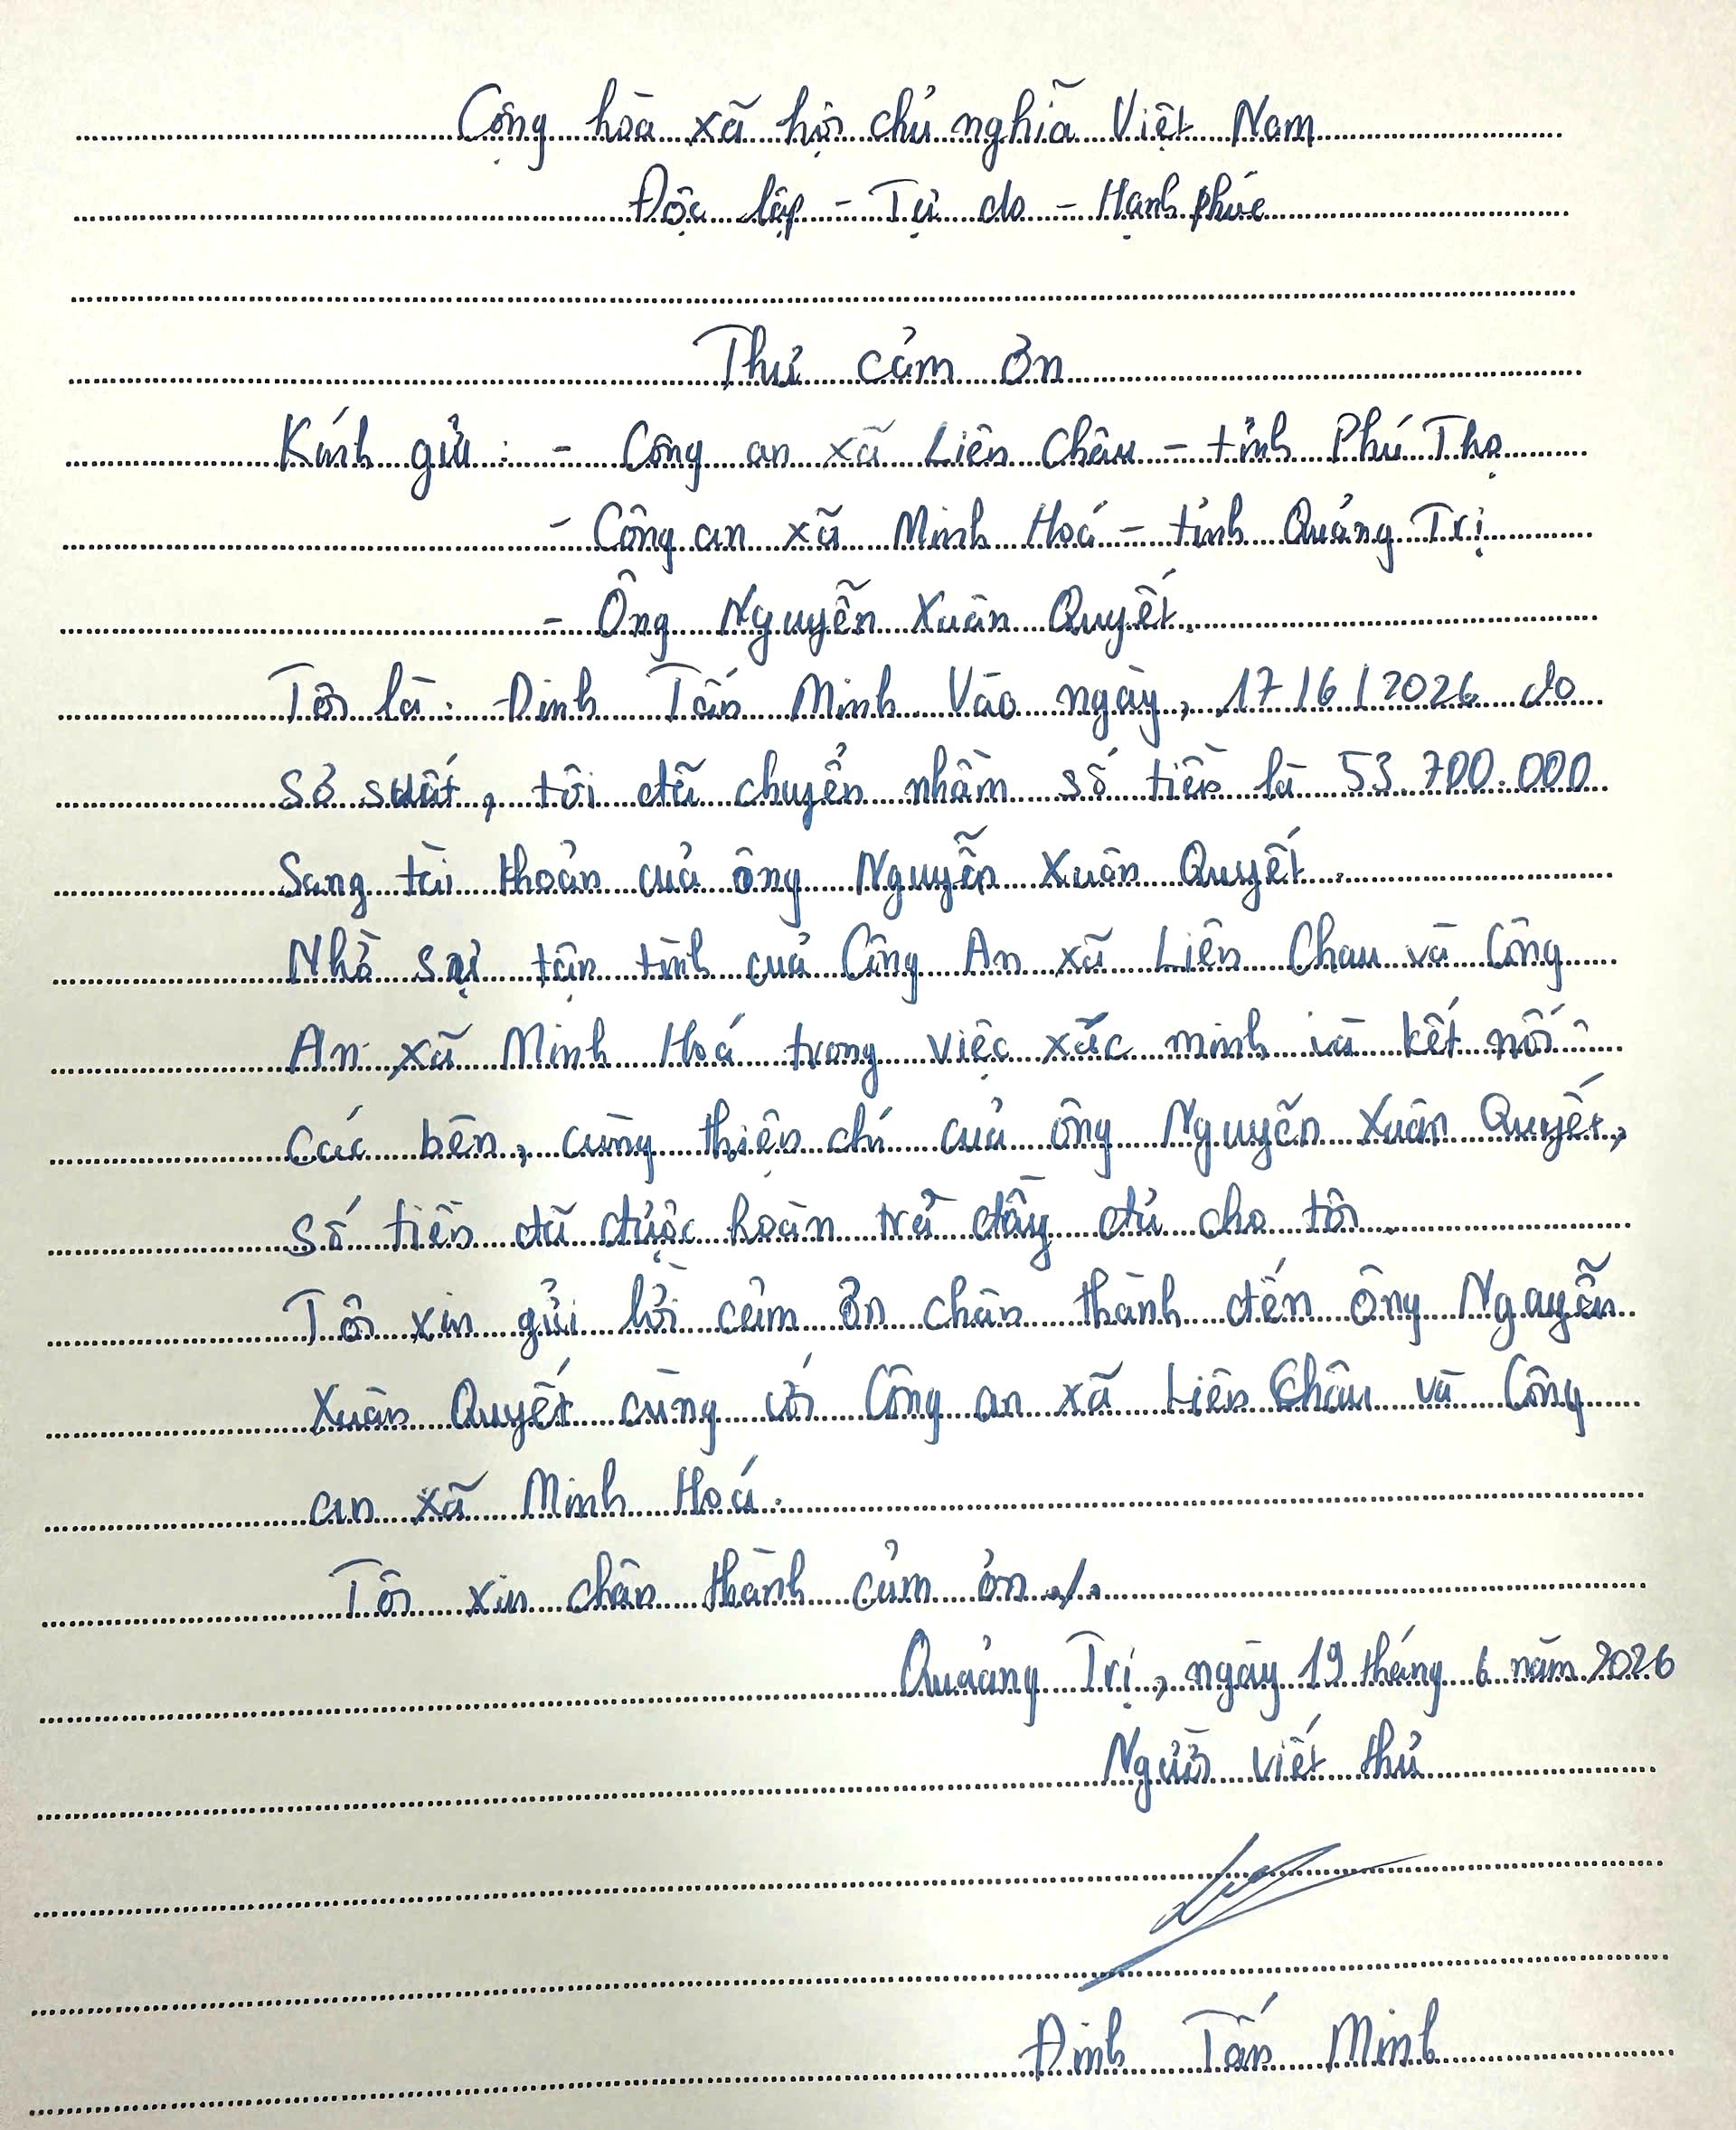 Cộng hòa xã hội chủ nghĩa Việt Nam
Độc lập - Tự do - Hạnh phúc
Thư cảm ơn
Kính gửi: - Công an xã Liên Châu - tỉnh Phú Thọ
- Công an xã Minh Hoá - tỉnh Quảng Trị
- Ông Nguyễn Xuân Quyết.
Tôi là: Đinh Tấn Minh Vào ngày, 17/6/2026 do
sơ suất, tôi đã chuyển nhầm số tiền là 53.700.000
Sang tài khoản của ông Nguyễn Xuân Quyết.
Nhờ sự tận tình của Công An xã Liên Chau và Công
An xã Minh Hoá trong việc xác minh và kết nối
các bên, cùng thiện chí của ông Nguyễn Xuân Quyết,
số tiền đã được hoàn trả đầy đủ cho tôi.
Tôi xin gửi lời cảm ơn chân thành đến ông Nguyễn
Xuân Quyết cùng với Công an xã Liên Châu và Công
an xã Minh Hoá.
Tôi xin chân thành cảm ơn./.
Quảng Trị, ngày 19 tháng 6 năm 2026
Người viết thư
Đinh Tấn Minh